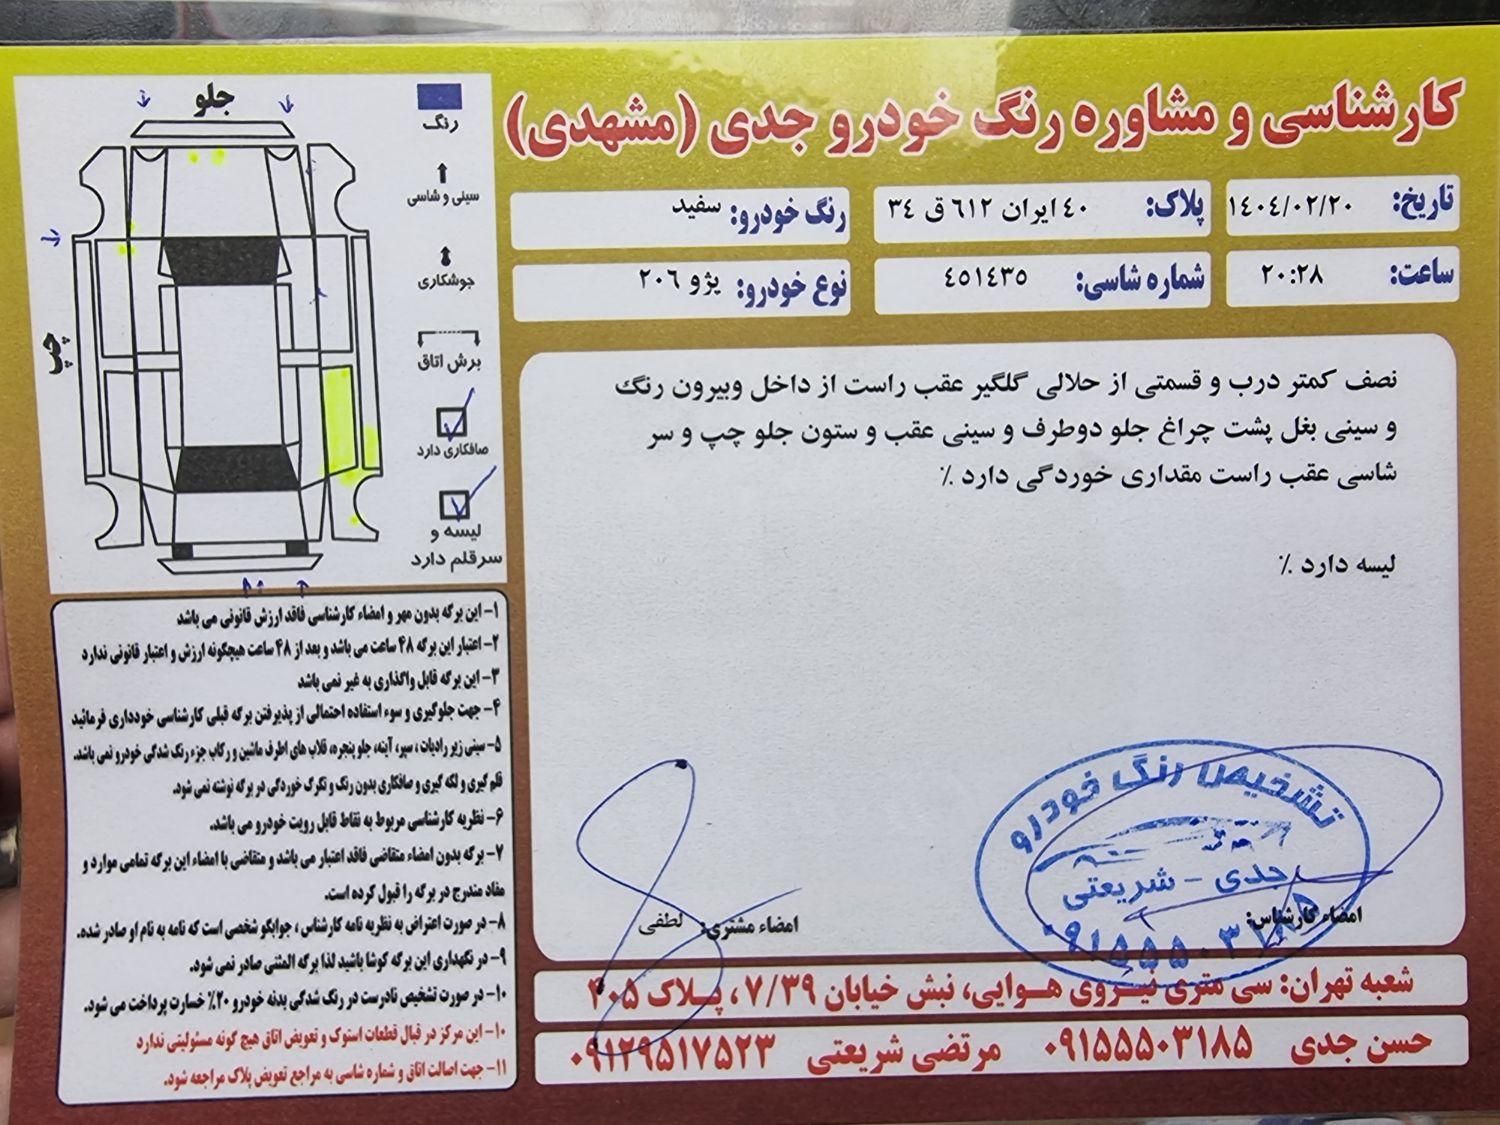 کارشناسی و مشاوره رنگ خودرو جدی (مشهدی)
تاریخ: ۱٤۰٤/۰۲/۲۰
پلاک: ٤۰ ایران ٦۱۲ ق ۳٤
رنگ خودرو: سفید
ساعت: ۲۰:۲۸
شماره شاسی: ٤٥۱٤۳٥
نوع خودرو: پژو ۲۰٦
نصف کمتر درب و قسمتی از حلالی گلگیر عقب راست از داخل وبیرون رنگ
و سینی بغل پشت چراغ جلو دوطرف و سینی عقب و ستون جلو چپ و سر
شاسی عقب راست مقداری خوردگی دارد ٪
لیسه دارد ٪
جلو
چپ
رنگ
سینی و شاسی
جوشکاری
برش اتاق
صافکاری دارد
لیسه و
سرقلم دارد
۱- این برگه بدون مهر و امضاء کارشناسی فاقد ارزش قانونی می باشد
۲- اعتبار این برگه ۴۸ ساعت می باشد و بعد از ۴۸ ساعت هیچگونه ارزش و اعتبار قانونی ندارد
۳- این برگه قابل واگذاری به غیر نمی باشد
۴- جهت جلوگیری و سوء استفاده احتمالی از پذیرفتن برگه قبلی کارشناسی خودداری فرمائید
۵- سینی زیر رادیات، سپر، آینه، جلوپنجره، قلاب های اطرف ماشین و رکاب جزء رنگ شدگی خودرو نمی باشد.
قلم گیری و لکه گیری و صافکاری بدون رنگ و تگرگ خوردگی در برگه نوشته نمی شود.
۶- نظریه کارشناسی مربوط به نقاط قابل رویت خودرو می باشد.
۷- برگه بدون امضاء متقاضی فاقد اعتبار می باشد و متقاضی با امضاء این برگه تمامی موارد و
مفاد مندرج در برگه را قبول کرده است.
۸- در صورت اعتراض به نظریه نامه کارشناس، جوابگو شخصی است که نامه به نام او صادر شده.
۹- در نگهداری این برگه کوشا باشید لذا برگه المثنی صادر نمی شود.
۱۰- در صورت تشخیص نادرست در رنگ شدگی بدنه خودرو ۲۰٪ خسارت پرداخت می شود.
۱۰- این مرکز در قبال قطعات استوک و تعویض اتاق هیچ گونه مسئولیتی ندارد
۱۱- جهت اصالت اتاق و شماره شاسی به مراجع تعویض پلاک مراجعه شود.
تشخیص رنگ خودرو
جدی - شریعتی
۰۹۱۵۵۵۰۳۱۸۵
امضاء کارشناس:
امضاء مشتری: لطفی
شعبه تهران: سی متری نیروی هوایی، نبش خیابان ۷/۳۹، پلاک ۴۰۵
حسن جدی ۰۹۱۵۵۵۰۳۱۸۵ مرتضی شریعتی ۰۹۱۲۹۵۱۷۵۲۳